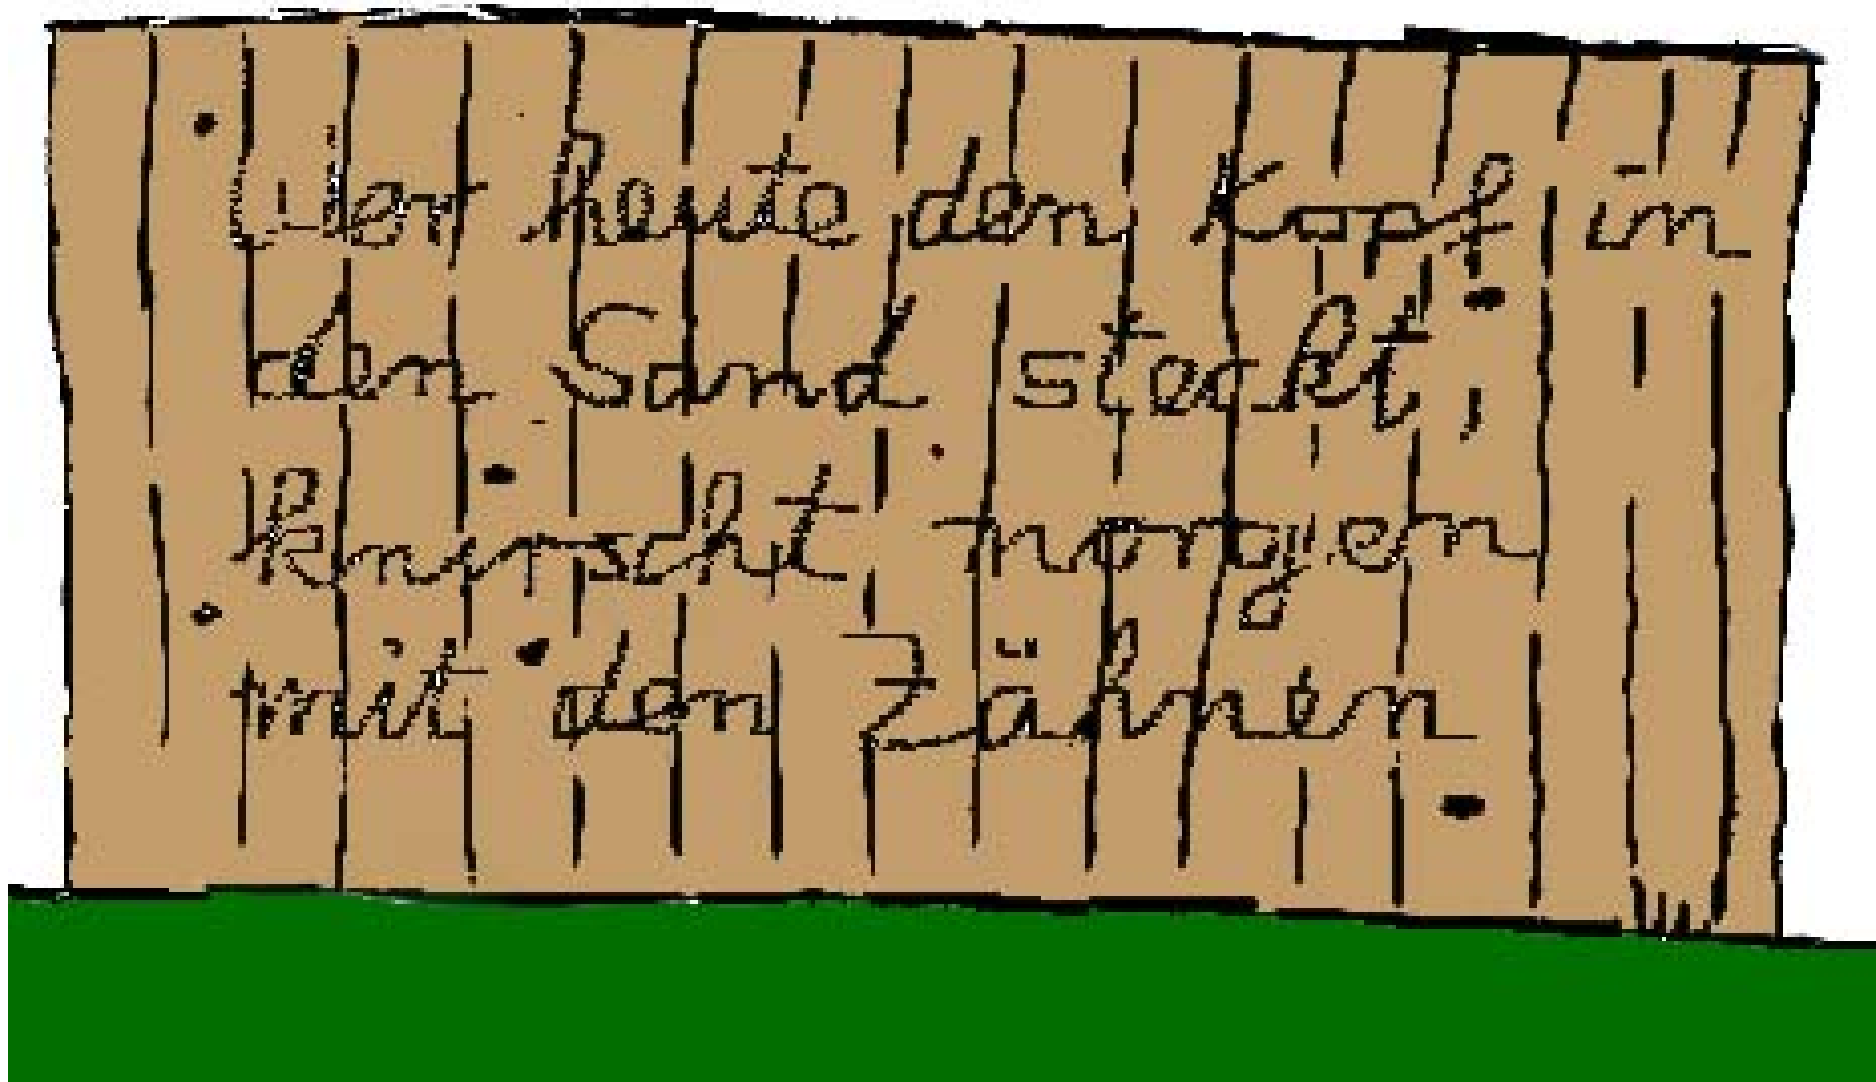 Wer heute den Kopf in
den Sand steckt,
knirscht morgen
mit den Zähnen